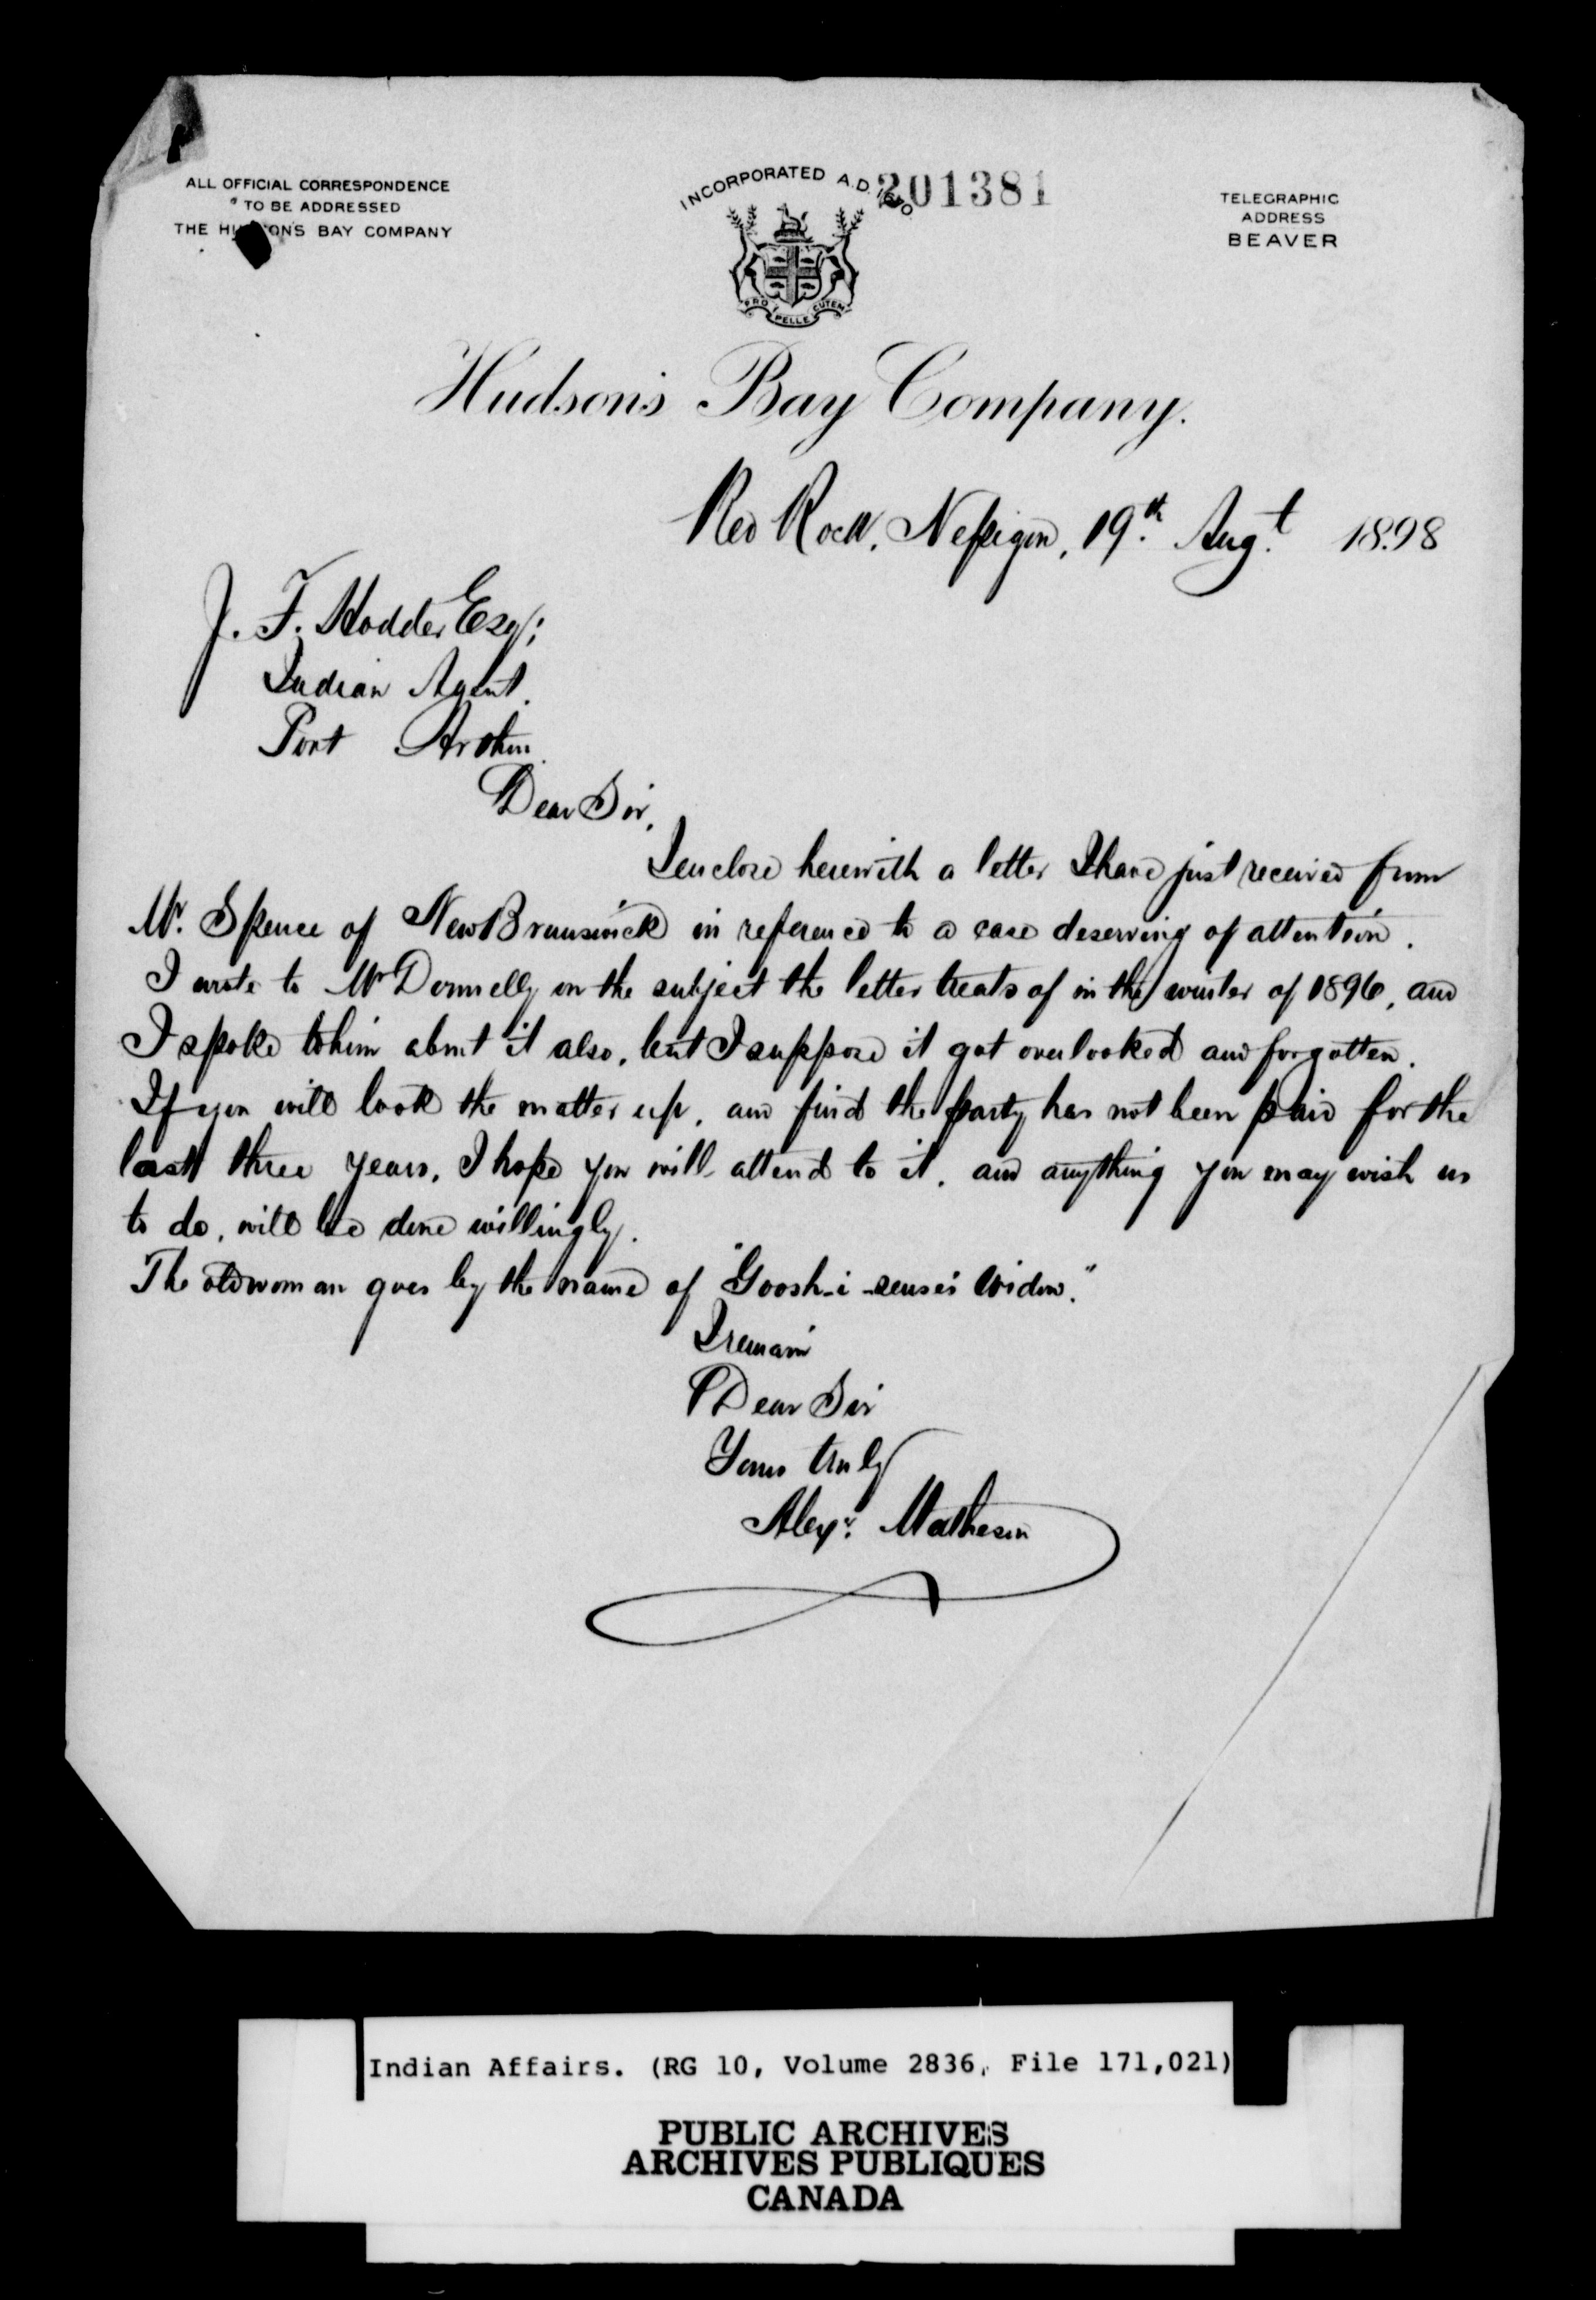 ALL OFFICIAL CORRESPONDENCE
TO BE ADDRESSED
THE HUDSON'S BAY COMPANY
INCORPORATED A.D. 1670
201381
TELEGRAPHIC
ADDRESS
BEAVER
PRO PELLE CUTEM
Hudson's Bay Company.
Red Rock, Nepigon, 19th. Augt. 1898
J. F. Hodder Esq;
Indian Agent.
Port Arthur.
Dear Sir,
I enclose herewith a letter I have just received from
Mr. Spence of New Brunswick in reference to a case deserving of attention.
I wrote to Mr Donnelly on the subject the letter treats of in the winter of 1896, and
I spoke to him about it also, but I suppose it got overlooked and forgotten.
If you will look the matter up, and find the party has not been paid for the
last three years, I hope you will attend to it, and anything you may wish us
to do, will be done willingly.
The old woman goes by the name of "Goosh-i-sense's Widow."
I remain
Dear Sir
Yours truly
Alexr. Matheson
Indian Affairs. (RG 10, Volume 2836, File 171,021)
PUBLIC ARCHIVES
ARCHIVES PUBLIQUES
CANADA